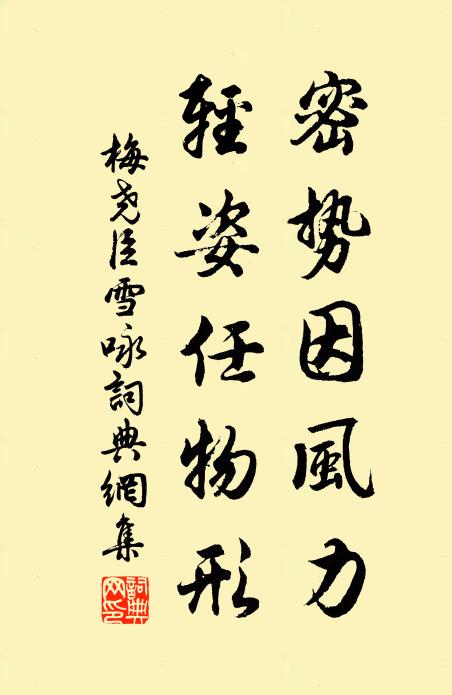 密势因風力
輕姿任物形
梅尧臣雪咏詞典網集
詞典网印